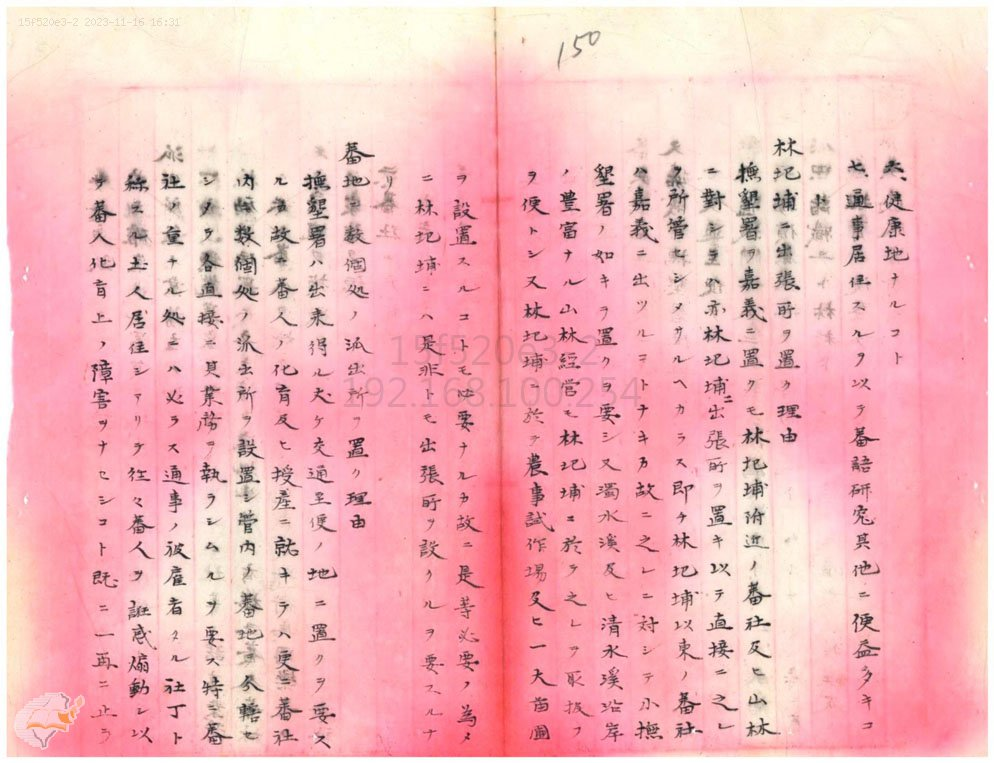 15f520e3-2 2023-11-16 16:31
150
六、健康地ナルコト
七、通事居住スルヲ以テ蕃語研究其他ニ便益多キコ
林圮埔ニ出張所ヲ置ク理由
撫墾署ヲ嘉義ニ置クモ林圮埔附近ノ蕃社及ヒ山林
ニ對シテ亦林圮埔ニ出張所ヲ置キ以テ直接ニ之レ
ヲ所管セシメサルヘカラス即チ林圮埔以東ノ蕃社
ハ嘉義ニ出ツルコトナキカ故ニ之レニ対シテ小撫
墾署ノ如キヲ置クヲ要シ又濁水溪及ヒ清水溪沿岸
ノ豊富ナル山林経営モ林圮埔ニ於テ之レヲ取扱フ
ヲ便トシス林圮埔ニ於テ農事試作場及ヒ一大苗圃
ヲ設置スルコトモ必要ナルカ故ニ是等必要ノ為メ
ニ林圮埔ニハ是非トモ出張所ヲ設クルヲ要スルナ
リ
蕃地ニ数個処ノ派出所ヲ置ク理由
撫墾署ハ出来得ル丈ケ交通至便ノ地ニ置クヲ要ス
ル故ニ蕃人ノ化育及ヒ授産ニ就キテハ更ニ蕃社
内ニ数個処ノ派出所ヲ設置シ管内ノ蕃地ヲ分轄セ
シメテ各直接ニ其業務ヲ執ラシムルヲ要ス特ニ蕃
社ノ重ナル処ニハ必ラス通事ノ被雇者タル社丁ト
称スル土人居住シアリテ往々蕃人ヲ誑惑煽動シ以
テ蕃人化育上ノ障害ヲナセシコト既ニ一再ニ止ラ
15f520e3-2
192.168.100.234